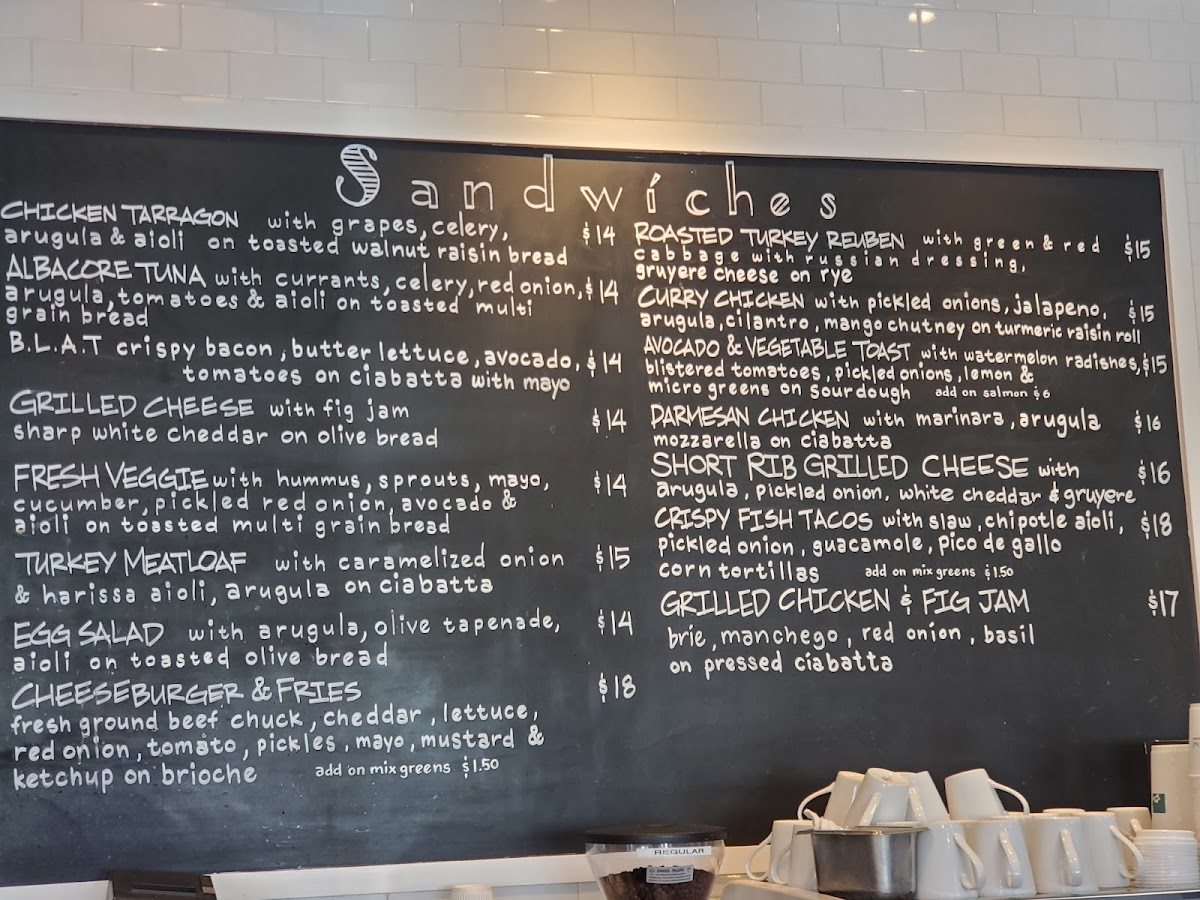 Sandwiches
CHICKEN TARRAGON with grapes, celery, $14
arugula & aioli on toasted walnut raisin bread
ALBACORE TUNA with currants, celery, red onion, $14
arugula, tomatoes & aioli on toasted multi
grain bread
B.L.A.T crispy bacon, butter lettuce, avocado, $14
tomatoes on ciabatta with mayo
GRILLED CHEESE with fig jam $14
sharp white cheddar on olive bread
FRESH VEGGIE with hummus, sprouts, mayo, $14
cucumber, pickled red onion, avocado &
aioli on toasted multi grain bread
TURKEY MEATLOAF with caramelized onion $15
& harissa aioli, arugula on ciabatta
EGG SALAD with arugula, olive tapenade, $14
aioli on toasted olive bread
CHEESEBURGER & FRIES $18
fresh ground beef chuck, cheddar, lettuce,
red onion, tomato, pickles, mayo, mustard &
ketchup on brioche add on mix greens $1.50
ROASTED TURKEY REUBEN with green & red $15
cabbage with russian dressing,
gruyere cheese on rye
CURRY CHICKEN with pickled onions, jalapeno, $15
arugula, cilantro, mango chutney on turmeric raisin roll
AVOCADO & VEGETABLE TOAST with watermelon radishes, $15
blistered tomatoes, pickled onions, lemon &
micro greens on sourdough add on salmon $6
PARMESAN CHICKEN with marinara, arugula $16
mozzarella on ciabatta
SHORT RIB GRILLED CHEESE with $16
arugula, pickled onion, white cheddar & gruyere
CRISPY FISH TACOS with slaw, chipotle aioli, $18
pickled onion, guacamole, pico de gallo
corn tortillas add on mix greens $1.50
GRILLED CHICKEN & FIG JAM $17
brie, manchego, red onion, basil
on pressed ciabatta
REGULAR